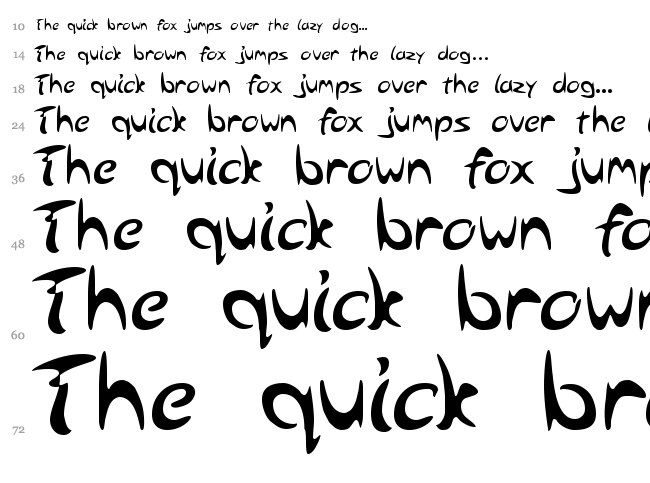 10 The quick brown fox jumps over the lazy dog...
14 The quick brown fox jumps over the lazy dog...
18 The quick brown fox jumps over the lazy dog...
24 The quick brown fox jumps over the
36 The quick brown fox jump
48 The quick brown fo
60 The quick brown
72 The quick br